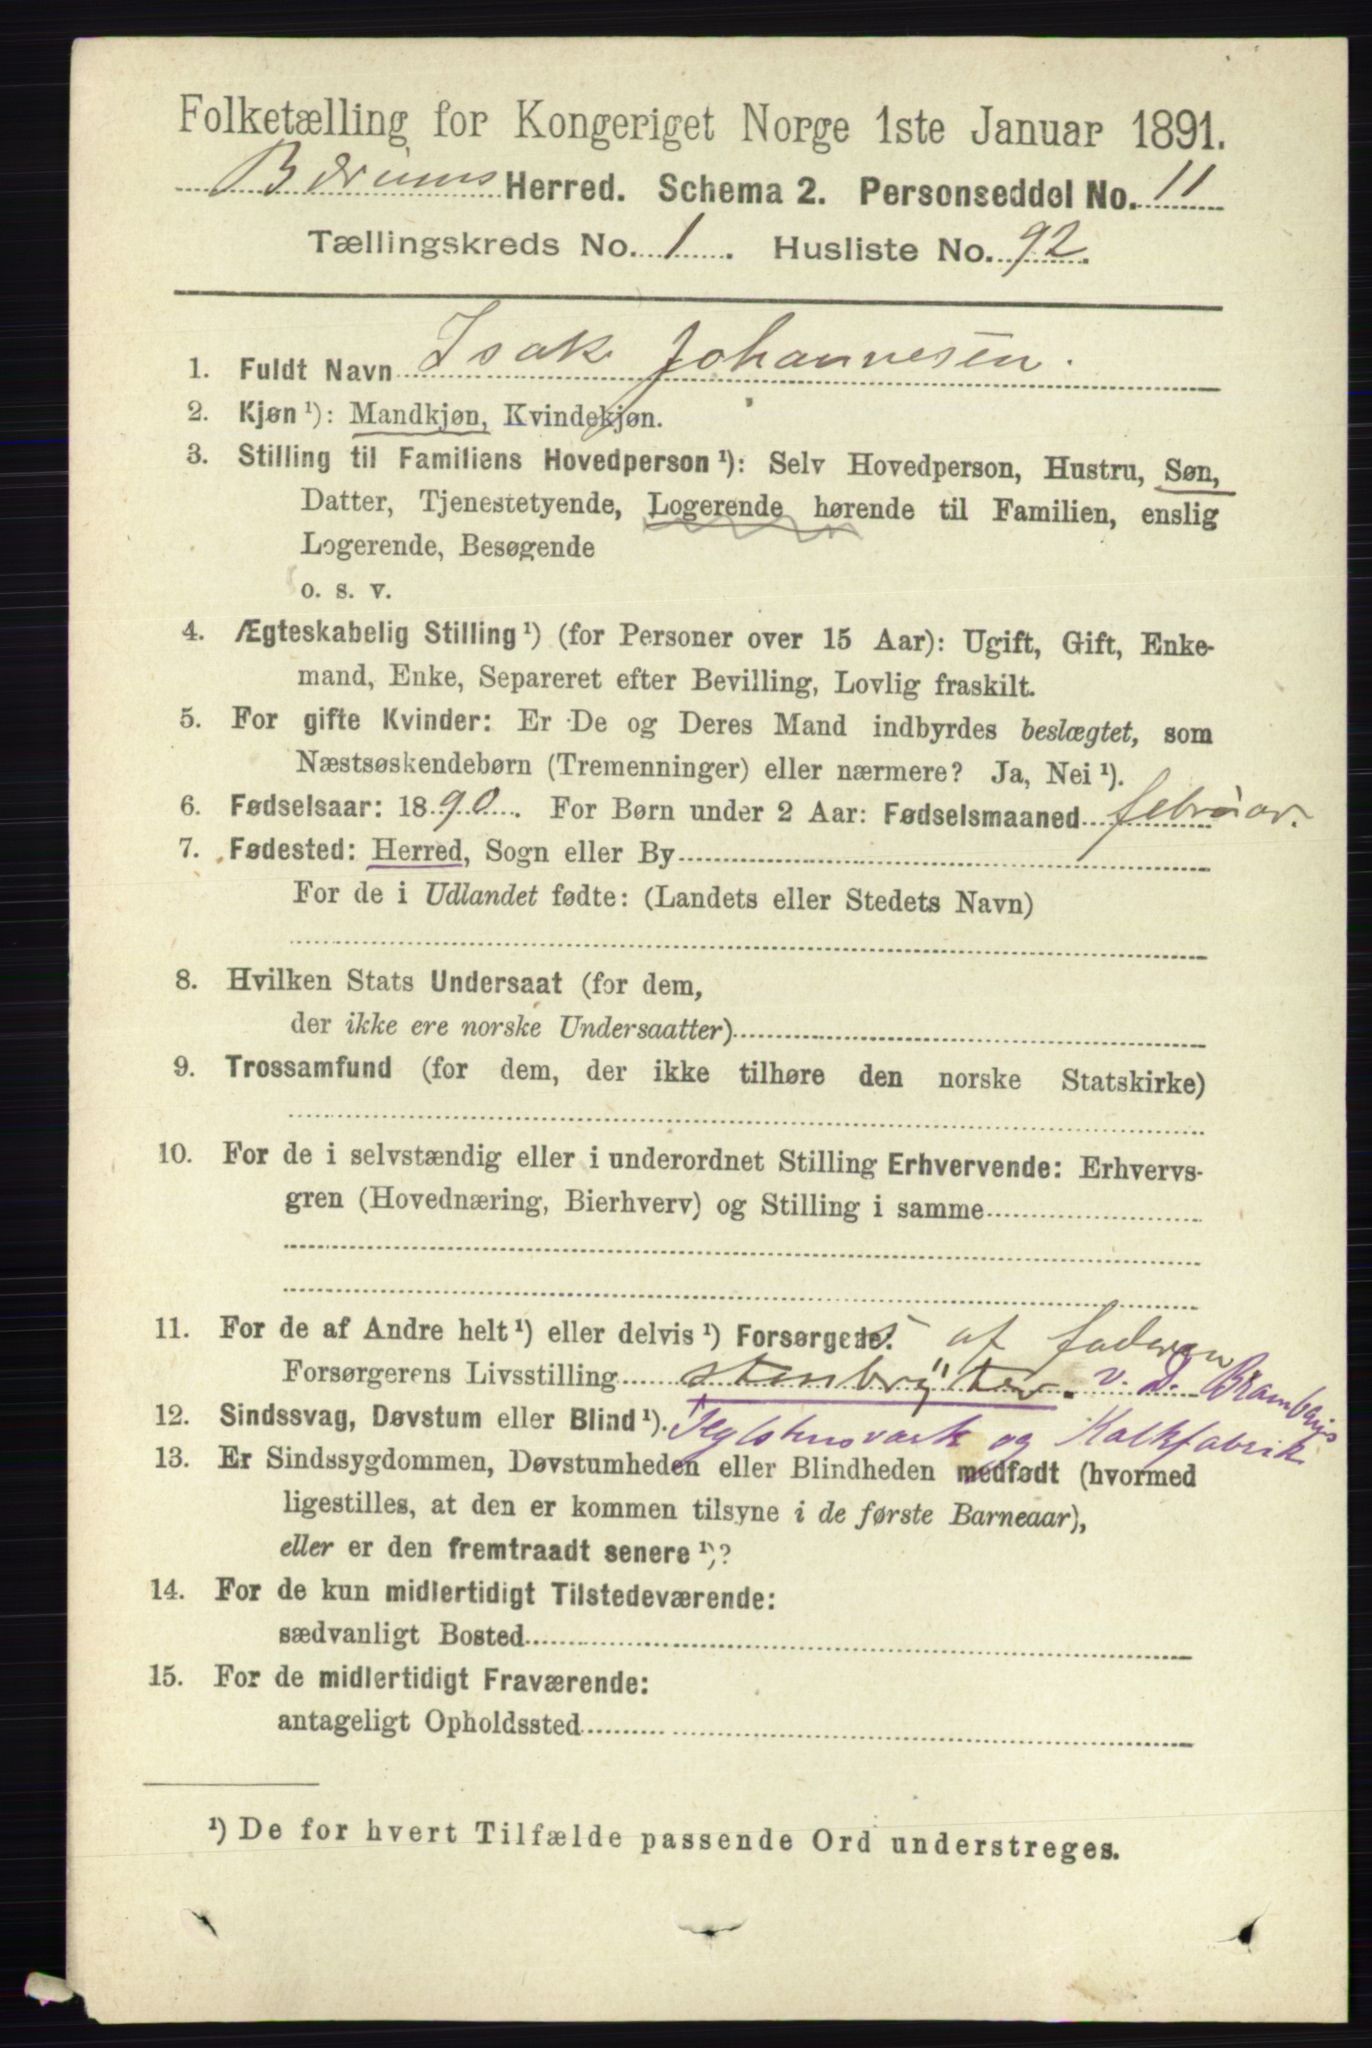 Folketælling for Kongeriget Norge 1ste Januar 1891.
Bærums Herred. Schema 2. Personseddel No. 11
Tællingskreds No. 1. Husliste No. 92.
1. Fuldt Navn Isak Johannesen.
2. Kjøn ¹): Mandkjøn, Kvindekjøn.
3. Stilling til Familiens Hovedperson ¹): Selv Hovedperson, Hustru, Søn,
Datter, Tjenestetyende, Logerende hørende til Familien, enslig
Logerende, Besøgende
o. s. v.
4. Ægteskabelig Stilling ¹) (for Personer over 15 Aar): Ugift, Gift, Enke-
mand, Enke, Separeret efter Bevilling, Lovlig fraskilt.
5. For gifte Kvinder: Er De og Deres Mand indbyrdes beslægtet, som
Næstsøskendebørn (Tremenninger) eller nærmere? Ja, Nei ¹).
6. Fødselsaar: 1890. For Børn under 2 Aar: Fødselsmaaned februar.
7. Fødested: Herred, Sogn eller By
For de i Udlandet fødte: (Landets eller Stedets Navn)
8. Hvilken Stats Undersaat (for dem,
der ikke ere norske Undersaatter)
9. Trossamfund (for dem, der ikke tilhøre den norske Statskirke)
10. For de i selvstændig eller i underordnet Stilling Erhvervende: Erhvervs-
gren (Hovednæring, Bierhverv) og Stilling i samme
11. For de af Andre helt ¹) eller delvis ¹) Forsørgede: af faderen
Forsørgerens Livsstilling stenbryter. v. D.
12. Sindssvag, Døvstum eller Blind ¹). og Kalkfabrik
13. Er Sindssygdommen, Døvstumheden eller Blindheden medfødt (hvormed
ligestilles, at den er kommen tilsyne i de første Barneaar),
eller er den fremtraadt senere ¹)?
14. For de kun midlertidigt Tilstedeværende:
sædvanligt Bosted
15. For de midlertidigt Fraværende:
antageligt Opholdssted
¹) De for hvert Tilfælde passende Ord understreges.